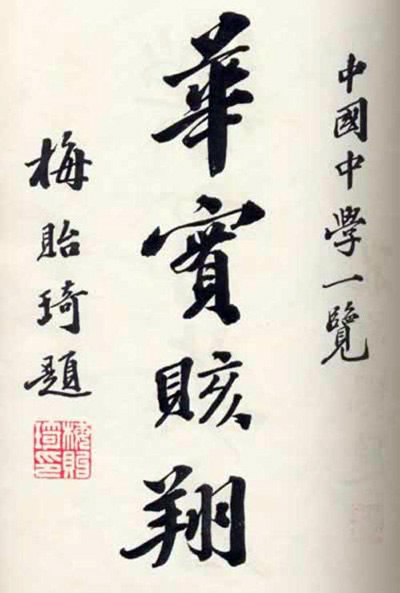 中國中學一覽
華實賅翔
梅貽琦題
梅貽
琦印